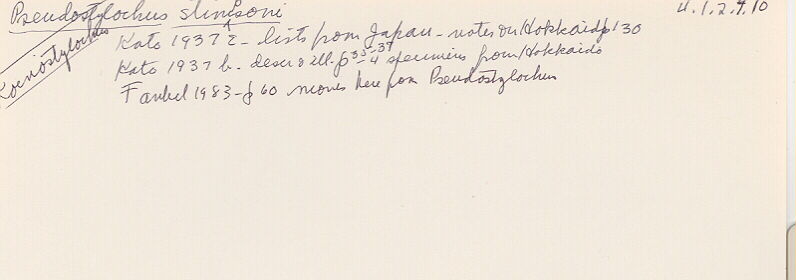 Pseudostylochus stimpsoni 4.1.2.4.10
Koenostylochus
Kato 1937 c - lists from Japan - notes on Hokkaido p130
Kato 1937 b - descr & ill. p 35-37 - 4 specimens from Hokkaido
Faubel 1983 - p 60 moves here from Pseudostylochus